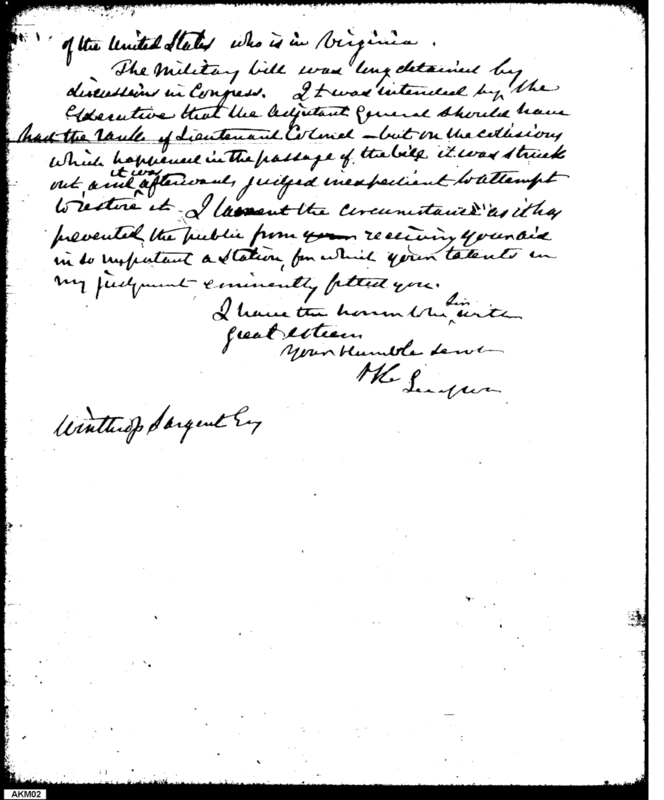 of the United States who is in Virginia.
The Military bill was long detained by
discussions in Congress. It was intended by the
Executive that the Adjutant General should have
had the rank of Lieutenant Colonel – but on the collisions
which happened in the passage of the bill it was struck
out, and it was afterwards judged inexpedient to attempt
to restore it – I lament the circumstance as it has
prevented the public from receiving your aid
in so important a station, for which your talents in
my judgment eminently fitted you.
I have the honor to be Sir with
great esteem
Your Humble Servt
Winthrop Sargent Esq
AKM02